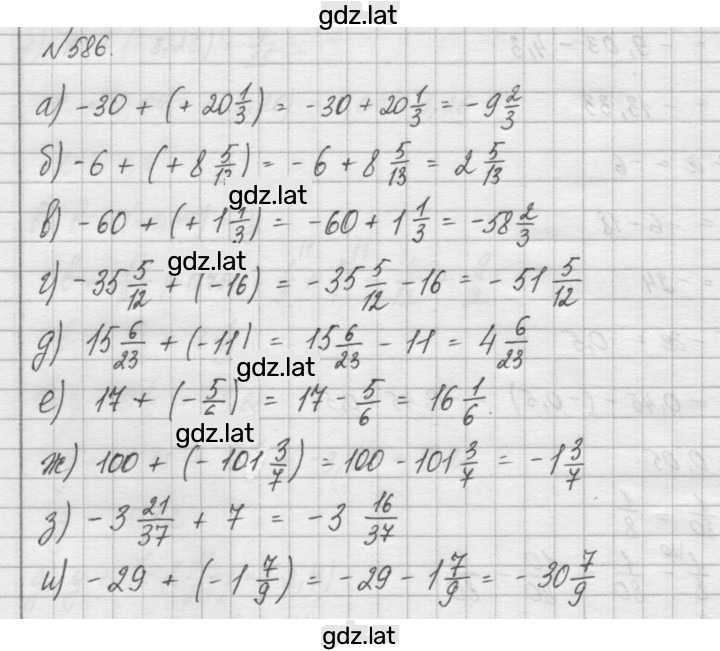 gdz.lat
№586.
а) -30 + (+ 20 1/3) = -30 + 20 1/3 = -9 2/3
б) -6 + (+ 8 5/13) = -6 + 8 5/13 = 2 5/13
gdz.lat
в) -60 + (+ 1 1/3) = -60 + 1 1/3 = -58 2/3
gdz.lat
г) -35 5/12 + (-16) = -35 5/12 - 16 = -51 5/12
д) 15 6/23 + (-11) = 15 6/23 - 11 = 4 6/23
gdz.lat
е) 17 + (- 5/6) = 17 - 5/6 = 16 1/6.
gdz.lat
ж) 100 + (- 101 3/7) = 100 - 101 3/7 = -1 3/7
з) -3 21/37 + 7 = -3 16/37
и) -29 + (-1 7/9) = -29 - 1 7/9 = -30 7/9
gdz.lat